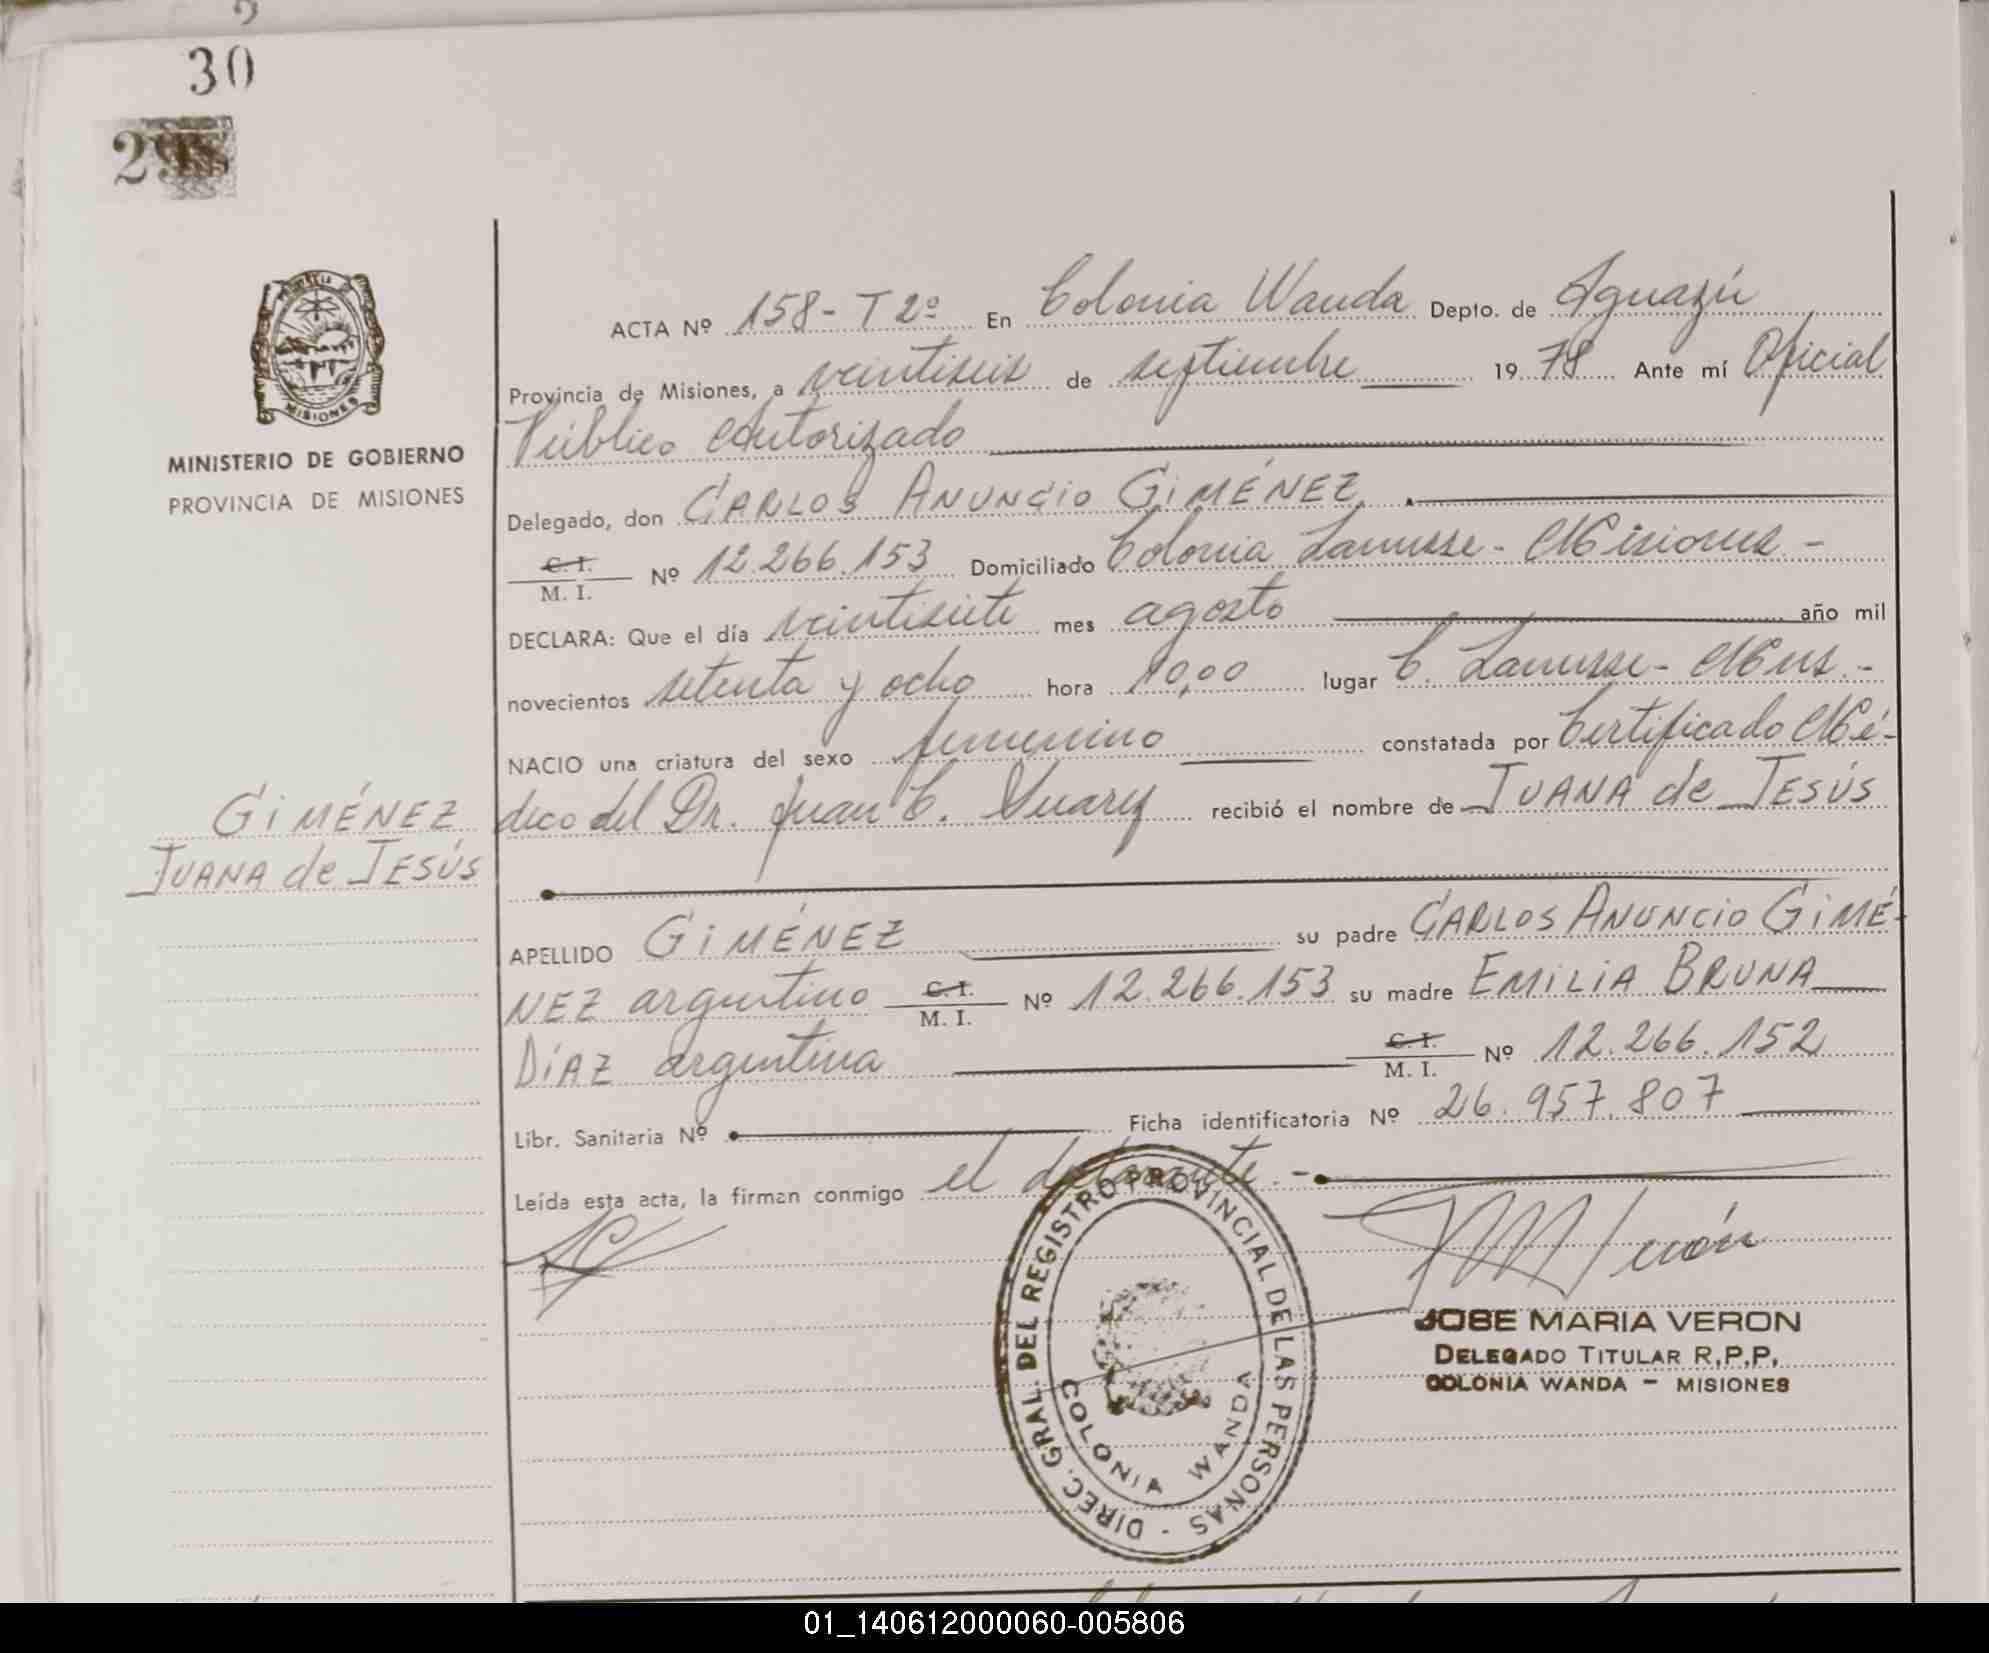 30
29
MISIONES
MINISTERIO DE GOBIERNO
PROVINCIA DE MISIONES
ACTA Nº 158-T 2º En Colonia Wanda Depto. de Iguazú
Provincia de Misiones, a veintiseis de septiembre 19 78 Ante mí Oficial
Público Autorizado
Delegado, don CARLOS ANUNCIO GIMÉNEZ
C. I.
M. I. Nº 12.266.153 Domiciliado Colonia Lanusse - Misiones -
DECLARA: Que el día veintisiete mes agosto año mil
novecientos setenta y ocho hora 10,00 lugar C. Lanusse - Mnes. -
NACIO una criatura del sexo femenino constatada por Certificado Mé-
dico del Dr. Juan C. recibió el nombre de JUANA de JESÚS
GIMÉNEZ
JUANA de JESÚS
APELLIDO GIMÉNEZ su padre CARLOS ANUNCIO GIMÉ-
NEZ argentino C. I. M. I. Nº 12.266.153 su madre EMILIA BRUNA
DÍAZ argentina C. I. M. I. Nº 12.266.152
Libr. Sanitaria Nº Ficha identificatoria Nº 26.957.807
Leída esta acta, la firman conmigo el declarante. -
DIREC. GRAL. DEL REGISTRO PROVINCIAL DE LAS PERSONAS -
COLONIA WANDA
JOSE MARIA VERON
DELEGADO TITULAR R.P.P.
COLONIA WANDA - MISIONES
01_140612000060-005806